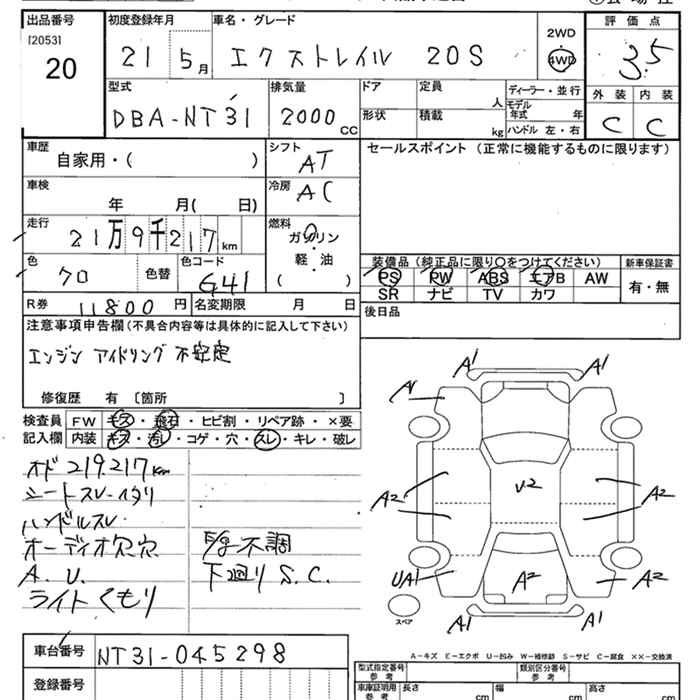 出品番号 初度登録年月 車名・グレード 評価点
[2053] 2WD
20 21 5月 エクストレイル 20S 4WD 3.5
型式 排気量 ドア 定員 人 ディーラー・並行 外装 内装
DBA-NT31 2000cc 形状 積載 kg モデル年式 年 C C
ハンドル 左・右
車歴 シフト セールスポイント (正常に機能するものに限ります)
自家用・( ) AT
車検 冷房
年 月( 日) AC
走行 燃料
21万9千217km ガソリン
色 色替 色コード 軽・油
クロ G41 ( )
装備品 (純正品に限り○をつけてください) 新車保証書
PS PW ABS エアB AW 有・無
SR ナビ TV カワ
R券 11800円 名変期限 月 日 後日品
注意事項申告欄 (不具合内容等は具体的に記入して下さい)
エンジン アイドリング 不安定
修復歴 有 [箇所 ]
検査員 FW キズ・飛石・ヒビ割・リペア跡・×要
記入欄 内装 キズ・汚レ・コゲ・穴・スレ・キレ・破レ
オド 219.217km
シートスレ・イタリ
ハンドルスレ
オーディオ欠穴 不調
A.U. 下廻りS.C.
ライトくもり
A1 A1
A1
U2
A2 A2
UA1 A2 A2
スペア A1 A1
A−キズ E−エクボ U−凹み W−補修跡 S−サビ C−腐食 ××−交換済
車台番号 NT31-045298
型式指定番号 類別区分番号
参考 参考
登録番号 車庫証明用 長さ cm 幅 cm 高さ cm
参考